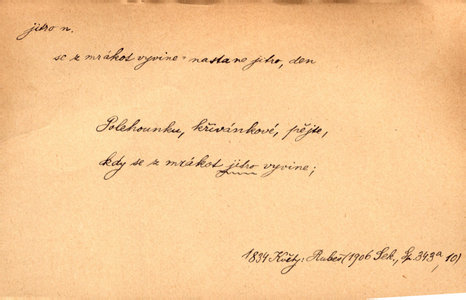 jitro n.
se z mrákot vyvine = nastane jitro, den
Polehounku, křivánkové, pějte,
kdy se z mrákot jitro vyvine;
1834 Květy: Rubeš (1906 Sek., 343a, 10)